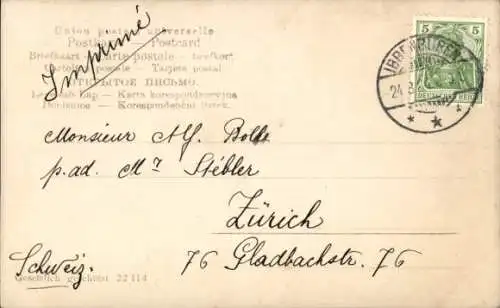 Union postale universelle
Postkarte — Postcard
Briefkaart — Carte postale — Brefkort
Cartolina postale — Tarjeta postal
ОТКРЫТОЕ ПИСЬМО.
Levelező-Lap — Karta korespondencyjna
Dopisnice — Korespondenční lístek.
Imprimé
5 5
IBBENBÜREN
24
Monsieur Alf. Bolle
p.ad. Mr Stebler
Zürich
76 Gladbachstr. 76
Schweiz.
Gesetzlich geschützt 22114